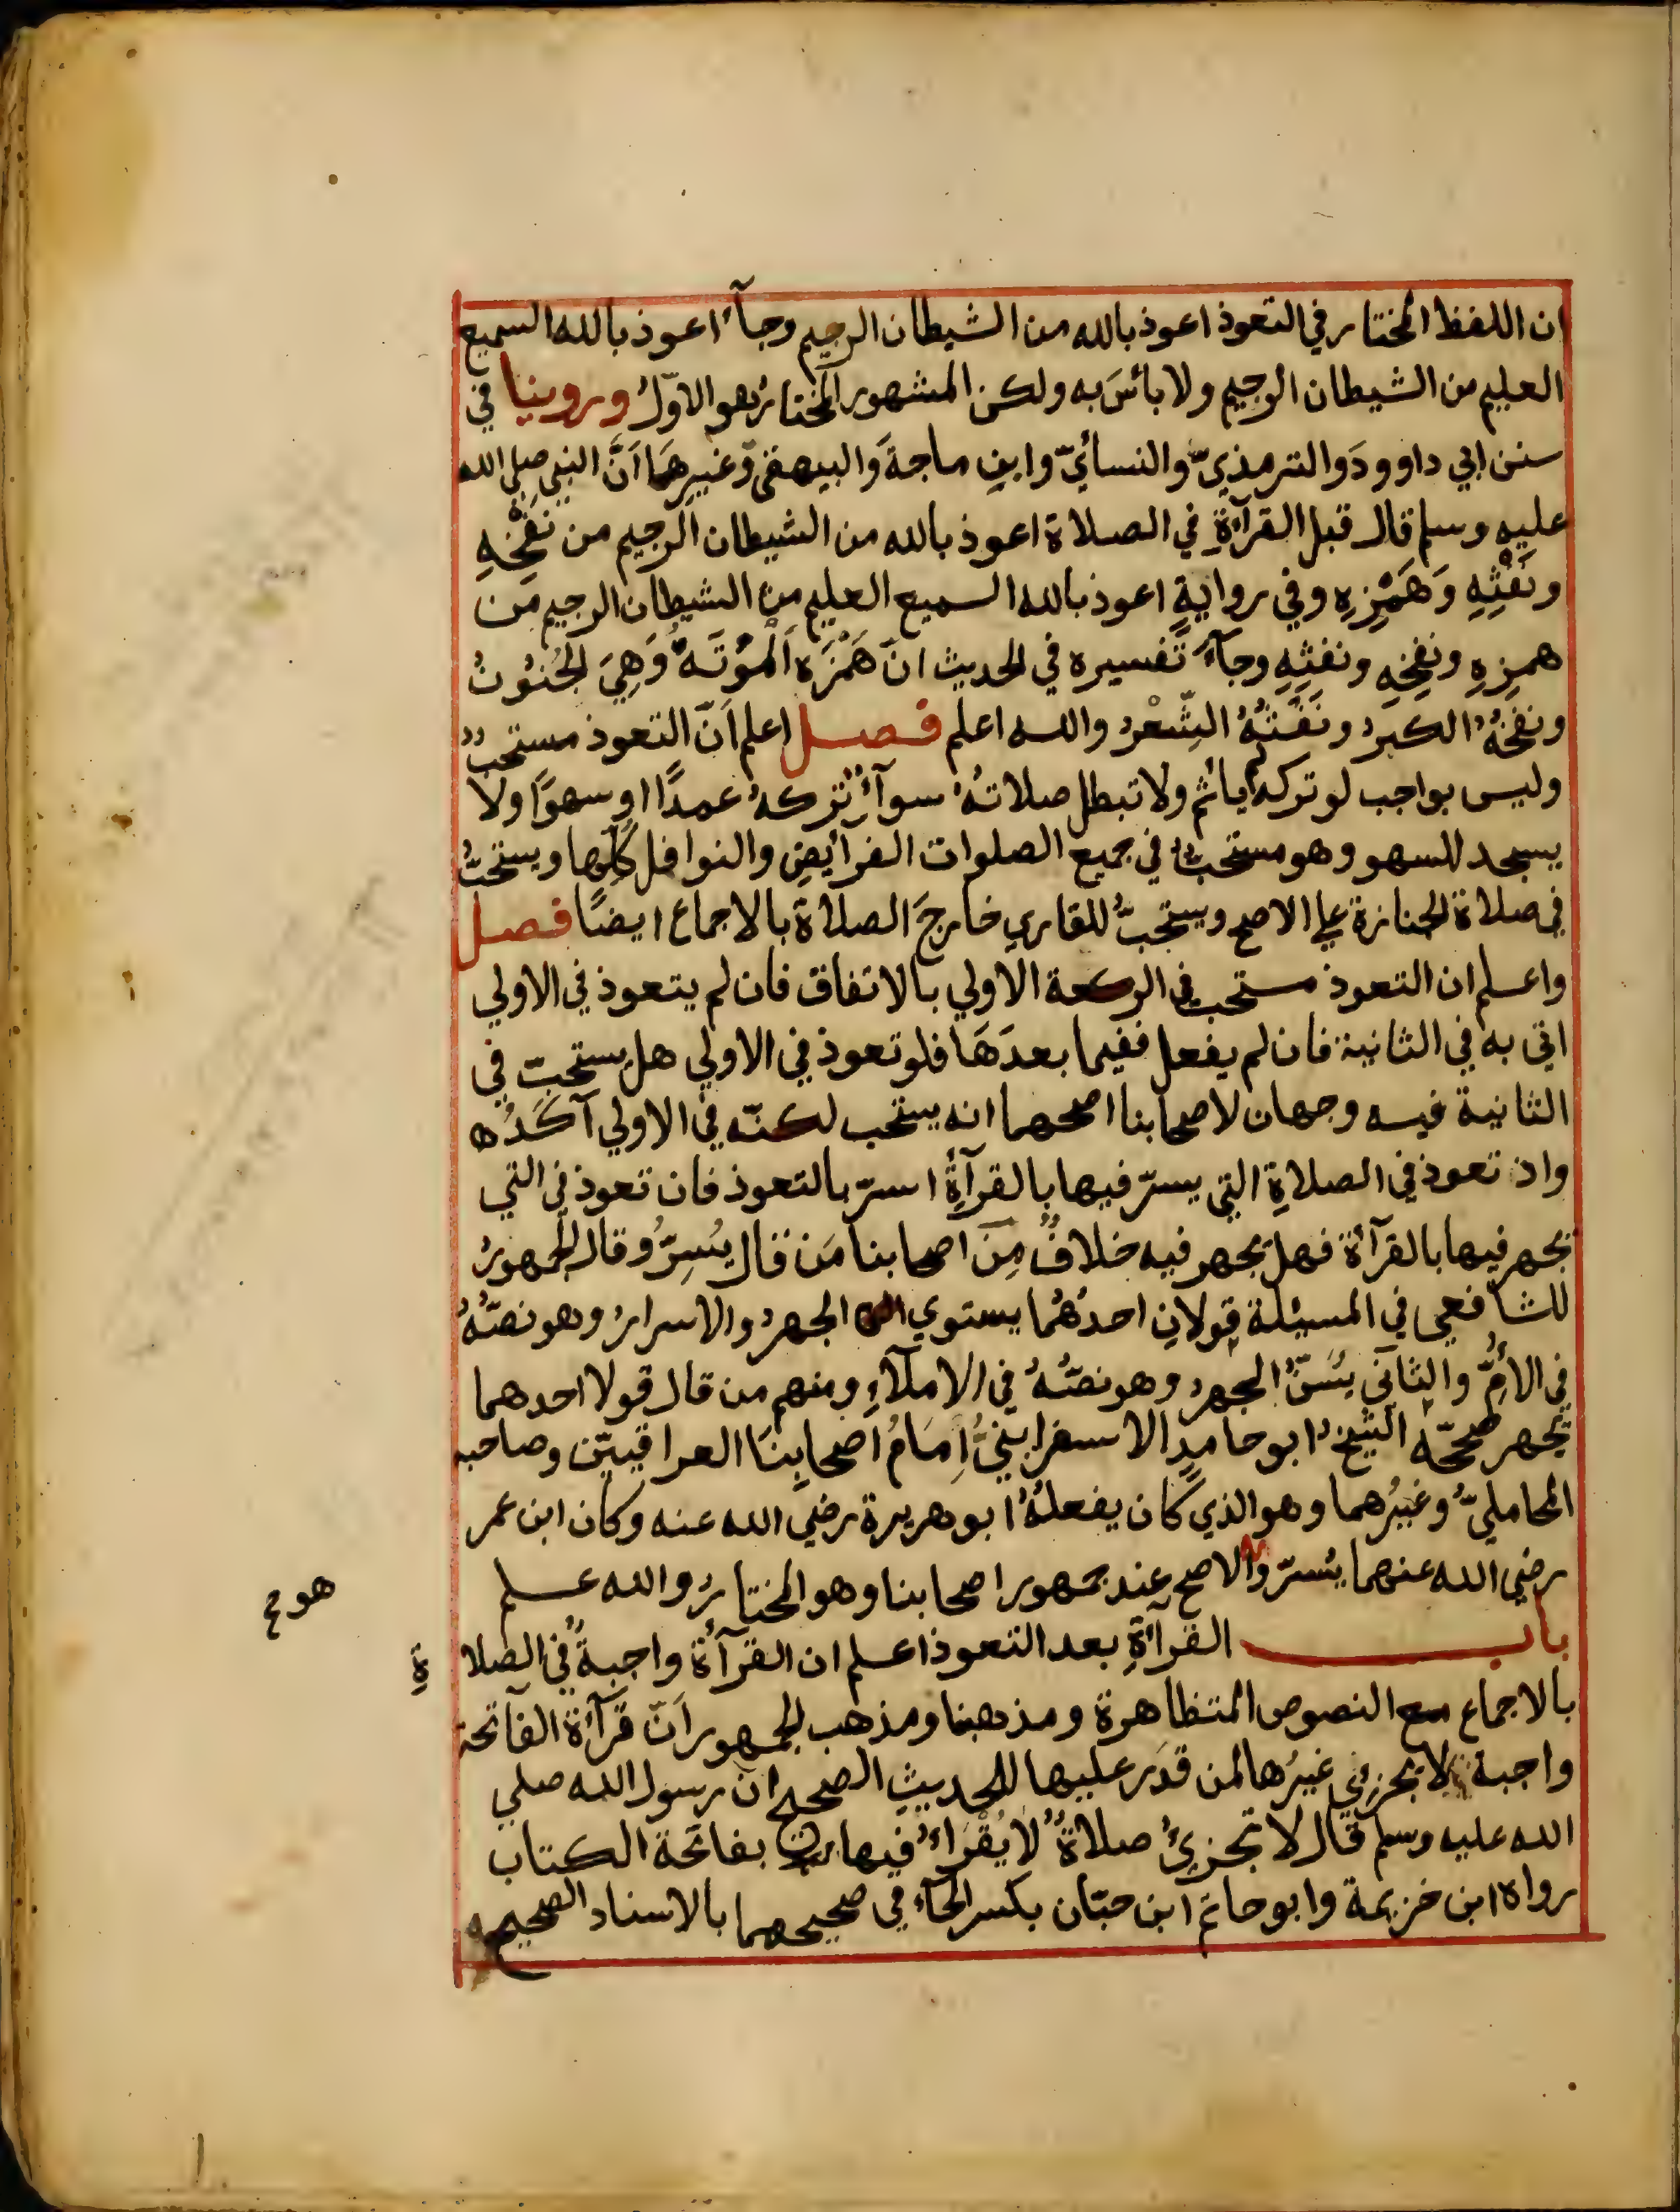 ان اللفظ المختار في التعوذ اعوذ بالله من الشيطان الرجيم وجآء اعوذ بالله السميع
العليم من الشيطان الرجيم ولا بائسَ به ولكن المشهور المختارُ هو الاوّلُ وروينا في
سنن ابي داوودَ والترمذيّ والنسائيّ وابنِ ماجةَ والبيهقيّ وغيرِهَا اَنَّ النبي صلى الله
عليه وسلم قال قبل القرآءةِ في الصلاة اعوذ بالله من الشيطان الرجيم من نَفْخِهِ
ونَفْثِهِ وَهَمْزِهِ وفي روايةٍ اعوذ بالله السميع العليم من الشيطان الرجيم من
همزِهِ ونفخِهِ ونفثِهِ وجآءَ تفسيره في الحديث انّ هَمْزَه اَلْمُوْتَهُ وَهِيَ الجُنُوْنُ
ونفخُهُ الكبرُ ونَفْثُهُ الشِّعْرُ والله اعلم فصل اعلم اَنّ التعوذ مستحبٌّ
وليس بواجب لو تركه لم يأثم ولا تبطل صلاتهُ سوآءٌ تركهُ عمدًا او سهوًا ولا
يسجد للسهو وهو مستحبٌّ في جميع الصلوات الفرائِضِ والنوافل كلِّها ويستحبُّ
في صلاة الجنازة على الاصح ويستحبُّ للقاري خارجَ الصلاة بالاجماع ايضًا فصل
واعلم ان التعوذ مستحب في الركعة الاولي بالاتفاق فان لم يتعوذ في الاولي
اتي به في الثانية فان لم يفعل ففيما بعدَهَا فلو تعوذ في الاولي هل يستحبّ في
الثانية فيه وجهان لاصحابنا اصحهما انه يستحب لكنّه في الاولي آكَدُ ه
واذ تعوذ في الصلاةِ التي يسرّ فيها بالقرآءةِ اسرّ بالتعوذ فان تعوذ في التي
يجهر فيها بالقرآءة فهل يجهر فيه خلافٌ مِنَ اصحابنا مَن قال يُسِرُّ وقال الجمهورُ
للشافعي في المسئلة قولانِ احدُهُما يستوي الجهرُ والاسرارُ وهو نصّهُ
في الأُمِّ والثاني يُسَنُّ الجهرُ وهو نصّهُ في الاملآءِ ومنهم من قال قولا احدهما
يجهر صححّه الشيخُ ابو حامدٍ الاسفراينيُّ اِمَامُ اصحابِنَا العراقيّين وصاحبه
المحامليُّ وغيرُهما وهو الذي كان يفعلُهُ ابو هريرة رضي الله عنه وكان ابن عمر
رضي الله عنهما يُسرّ والاصح عِند جمهور اصحابنا وهو المختارُ والله علم
هو صح
باب القرآءةِ بعد التعوذ اعلم ان القرآءة واجبةٌ في الصلاةِ
بالاجماع مع النصوص المتظاهرة ومذهبنا ومذهب الجمهور اَنّ قرآءة الفاتحة
واجبة لا يجزئي غيرُها لمن قدَر عليها للحديثِ الصحيح ان رسول الله صلي
الله عليه وسلم قال لا تجزئُ صلاةٌ لا يُقْرَاءُ فيها بفاتحة الكتاب
رواه ابن خزيمة وابو حاتم ابن حبّان بكسر الحآء في صحيحهما بالاسناد الصحيح